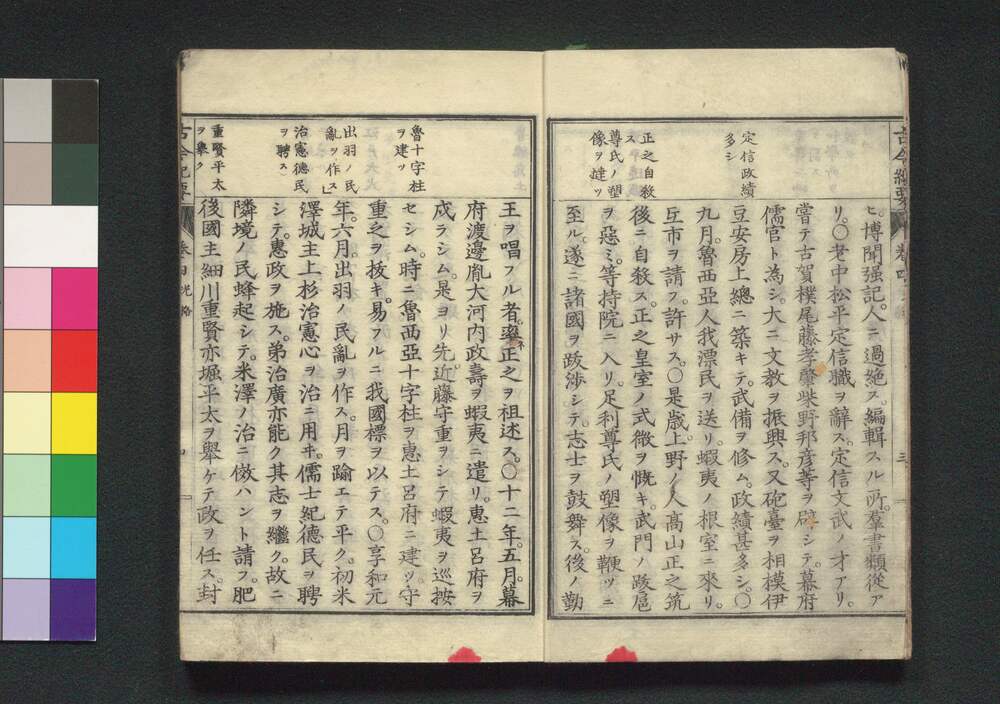 定信政績
多シ
正之自殺
ス
尊氏ノ塑
像ヲ撻ツ
ヒ。博聞强記。人ニ過絶ス。編輯スル所。羣書類從ア
リ。〇老中松平定信職ヲ辭ス。定信文武ノ才アリ。
嘗テ古賀樸尾藤孝肇柴野邦彦等ヲ辟シテ。幕府
儒官ト為シ。大ニ文教ヲ振興ス。又砲臺ヲ相模伊
豆安房上總ニ築キテ。武備ヲ修ム。政績甚多シ。〇
九月。魯西亞人我漂民ヲ送リ。蝦夷ノ根室ニ來リ。
互市ヲ請フ。許サス。〇是歳。上野ノ人高山正之筑
後ニ自殺ス。正之皇室ノ式微ヲ慨キ。武門ノ跋扈
ヲ惡ミ。等持院ニ入リ。足利尊氏ノ塑像ヲ鞭ツニ
至ル。遂ニ諸國ヲ跋渉シテ。志士ヲ鼓舞ス。後ノ勤
魯十字柱
ヲ建ツ
出羽ノ民
亂ヲ作ス
治憲德民
ヲ聘ス
重賢平太
ヲ舉ク
王ヲ唱フル者。率正之ヲ祖述ス。〇十二年。五月。幕
府渡邊胤大河内政壽ヲ蝦夷ニ遣リ。惠土呂府ヲ
戍ラシム。是ヨリ先。近藤守重ヲシテ蝦夷ヲ巡按
セシム。時ニ魯西亞十字柱ヲ惠土呂府ニ建ツ。守
重之ヲ抜キ。易フルニ我國標ヲ以テス。〇享和元
年。六月。出羽ノ民亂ヲ作ス。月ヲ踰エテ平ク。初米
澤城主上杉治憲心ヲ治ニ用ヰ。儒士紀德民ヲ聘
シテ。惠政ヲ施ス。弟治廣亦能ク其志ヲ繼ク。故ニ
隣境ノ民蜂起シテ。米澤ノ治ニ傚ハント請フ。肥
後國主細川重賢亦堀平太ヲ舉ケテ政ヲ任ス。封